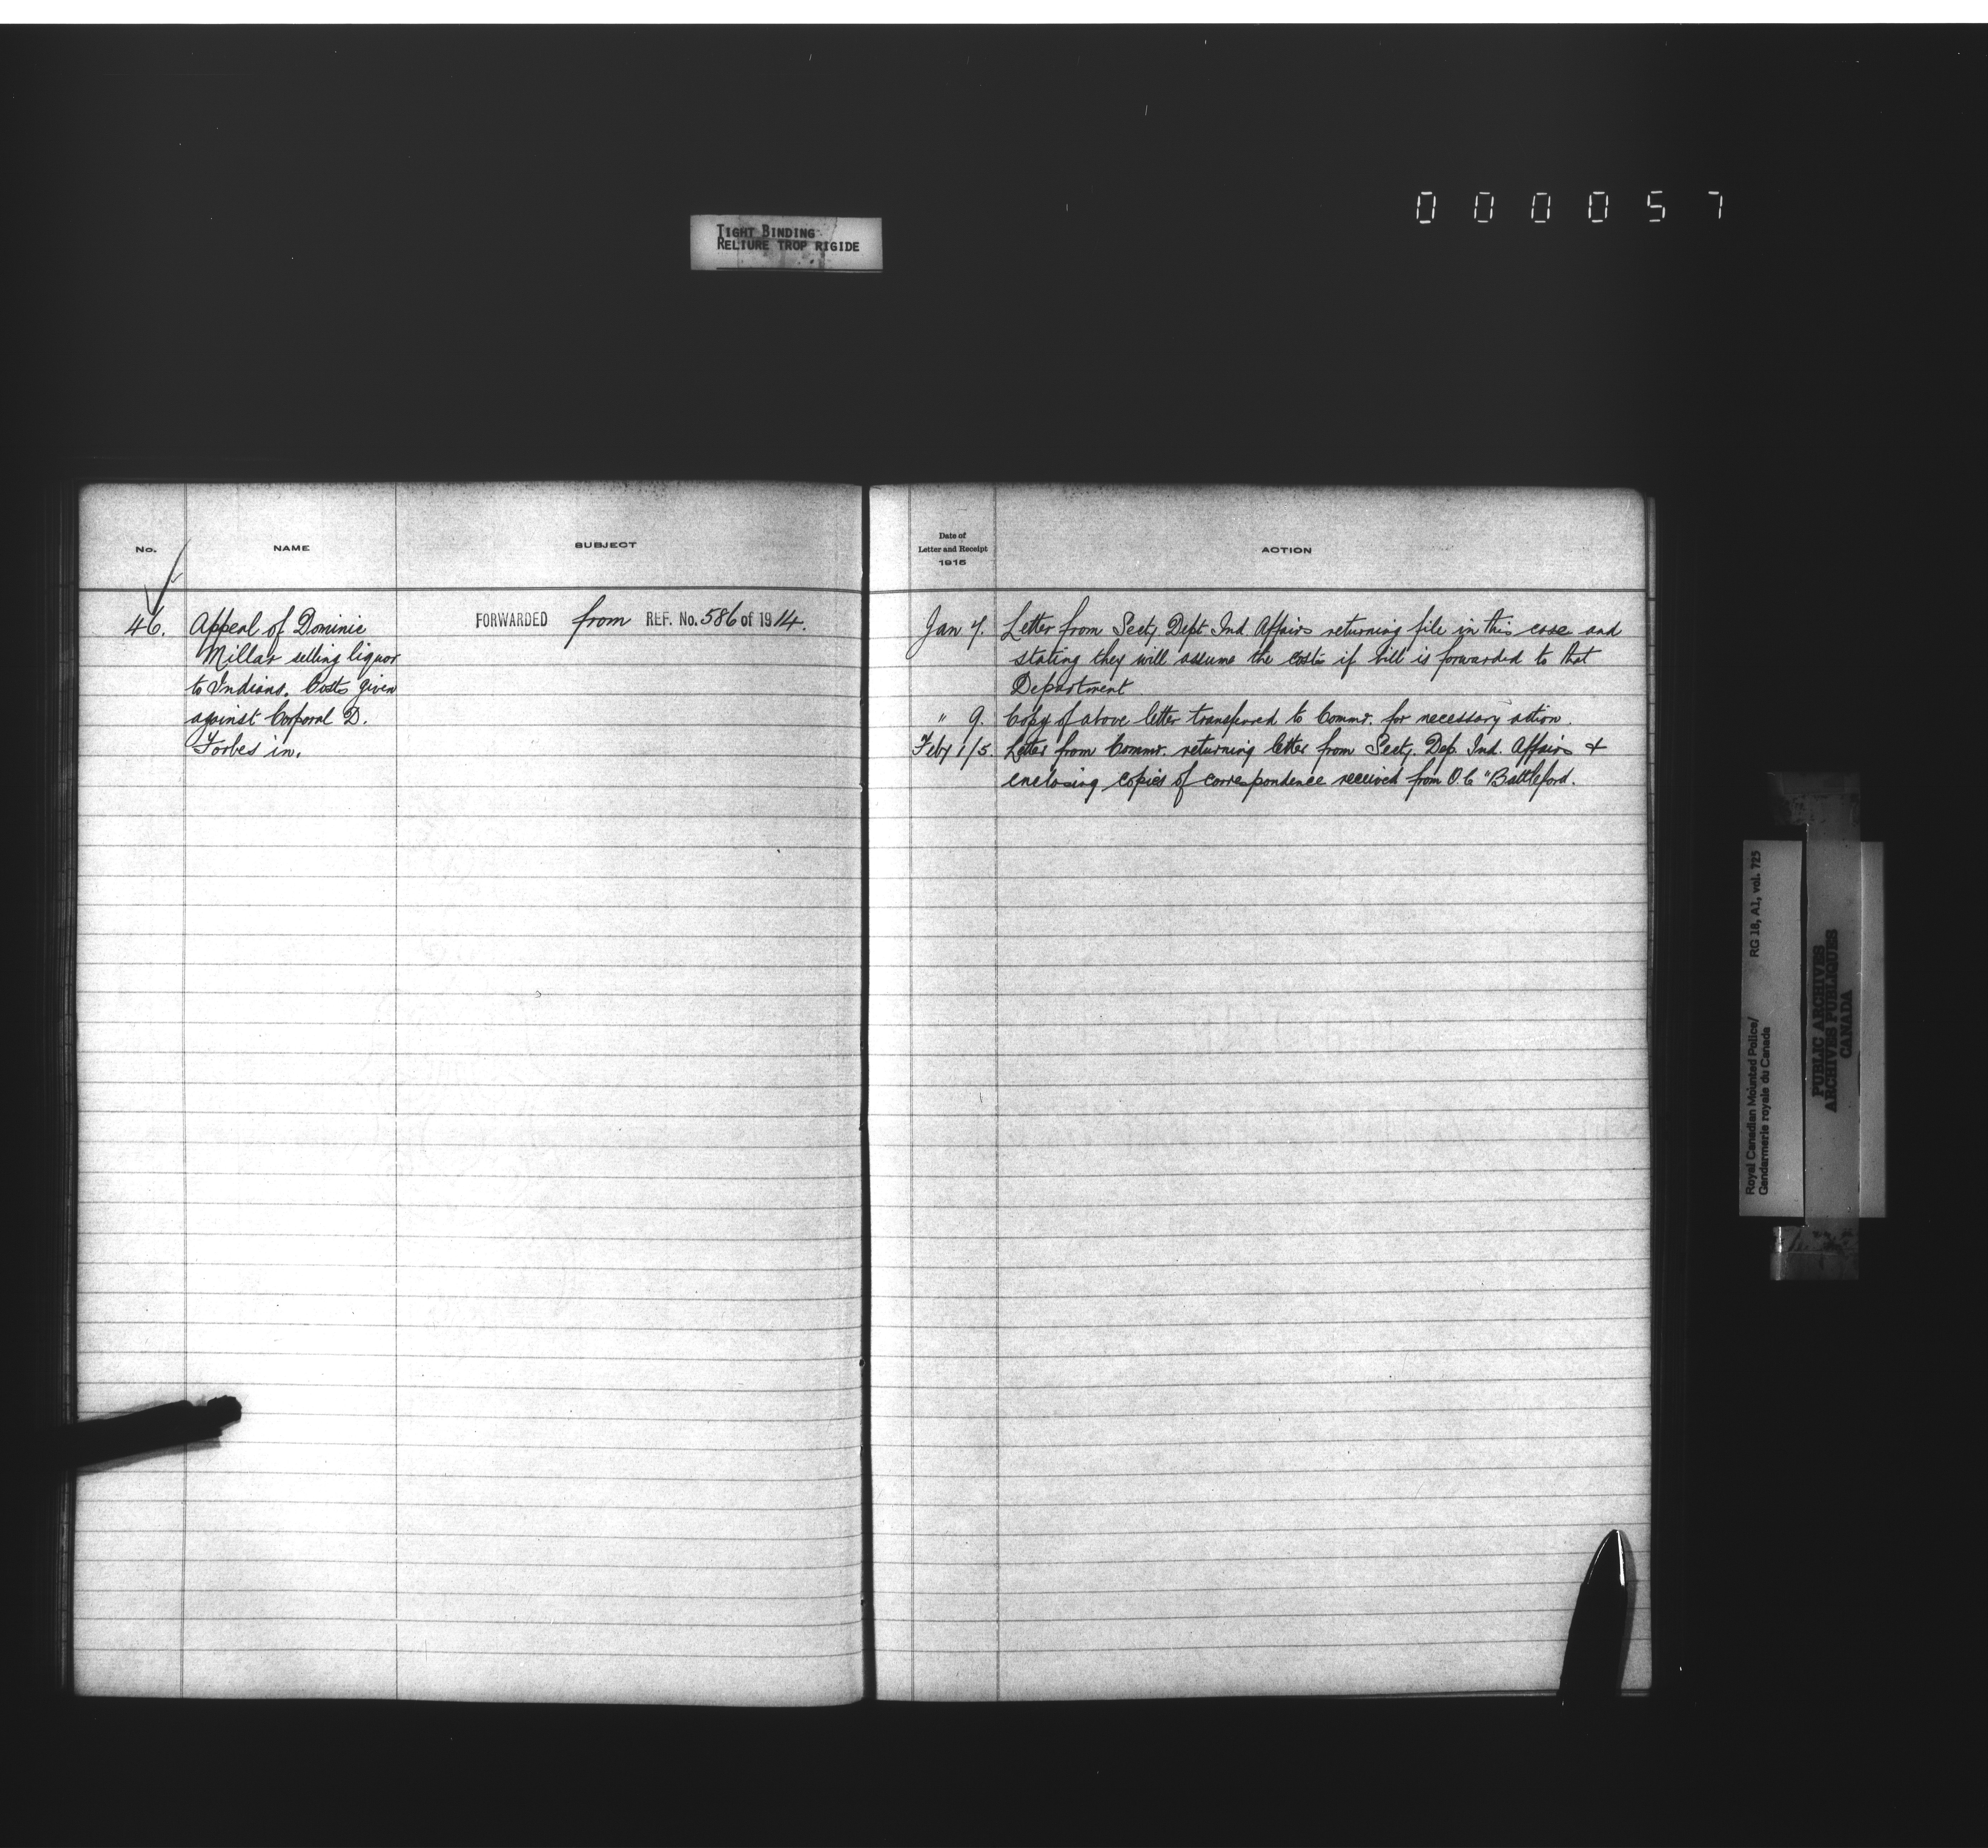 000057
TIGHT BINDING
RELIURE TROP RIGIDE
No.
NAME
SUBJECT
46.
Appeal of Dominic
Millar selling liquor
to Indians. Costs given
against Corporal D.
Forbes in.
FORWARDED from REF. No. 586 of 1914.
Date of
Letter and Receipt
1915
ACTION
Jan 7. Letter from Secty. Dept Ind Affairs returning file in this case and
stating they will assume the costs if bill is forwarded to that
Department.
" 9. Copy of above letter transferred to Commr. for necessary action.
Feby 1/5. Letter from Commr. returning letter from Secty. Dep. Ind. Affairs &
enclosing copies of correspondence received from O.C "Battleford.
Royal Canadian Mounted Police/
Gendarmerie royale du Canada
RG 18, A1, vol. 725
PUBLIC ARCHIVES
ARCHIVES PUBLIQUES
CANADA